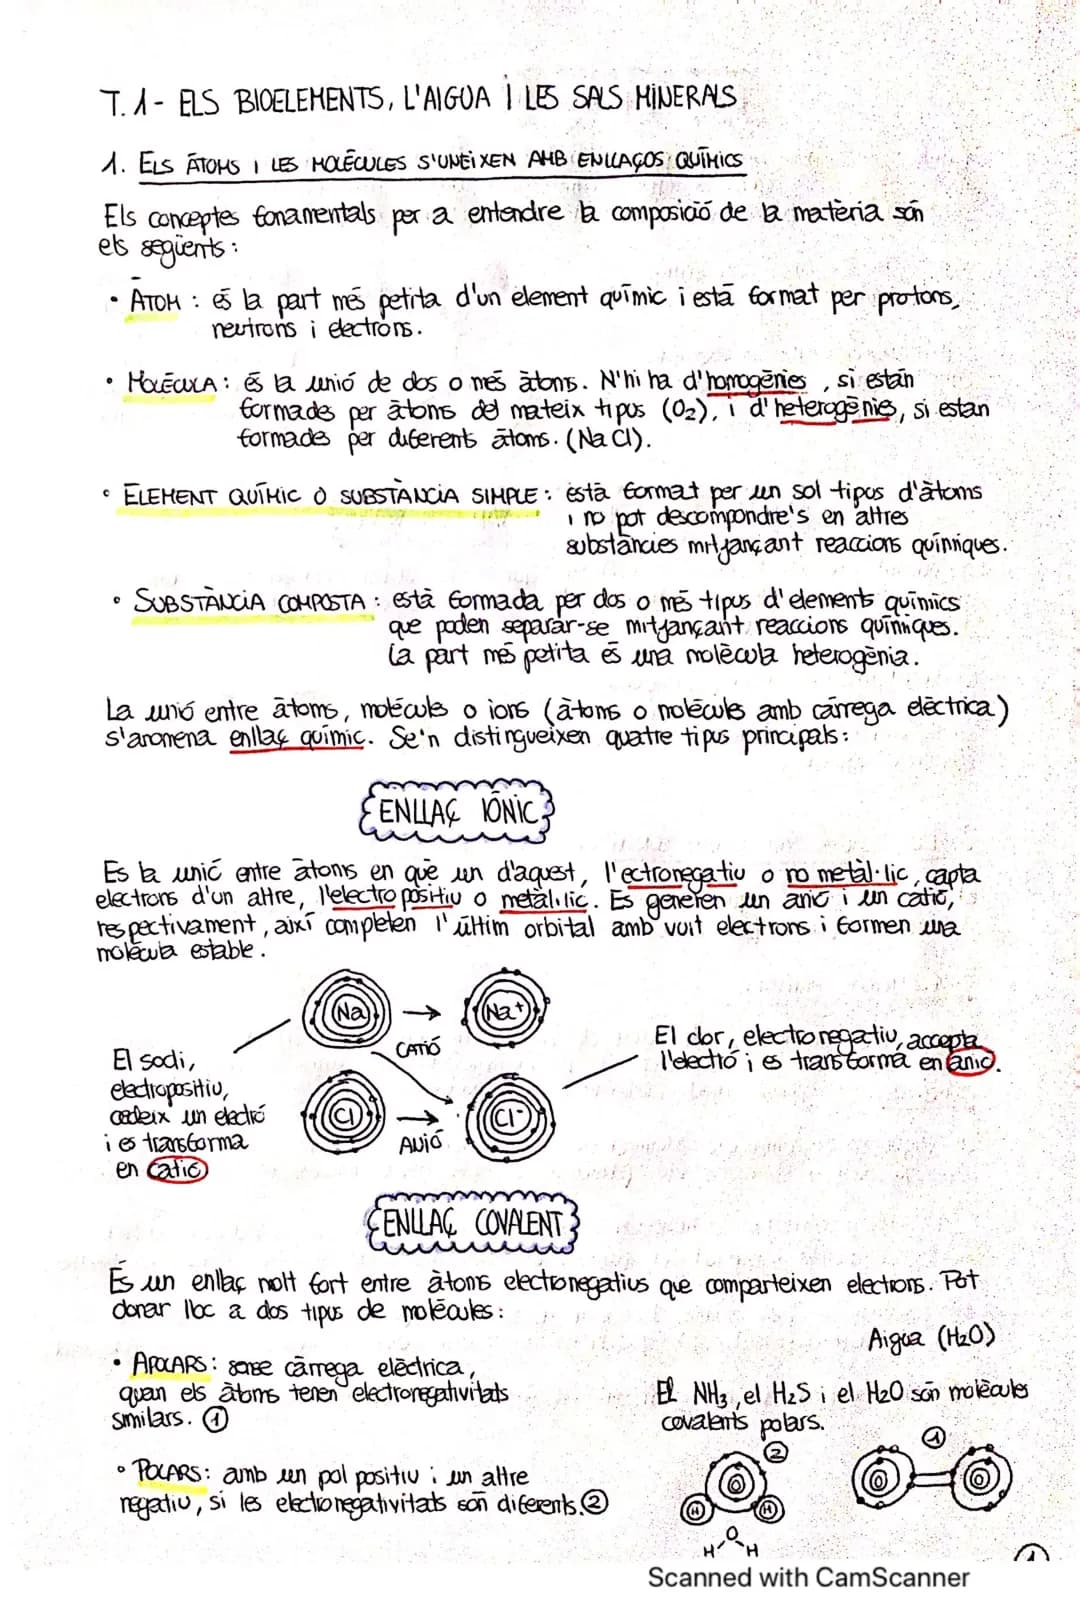 T. 1- ELS BIOELEMENTS, L'AIGUA I LES SALS MINERALS
1. ELS ÀTOMS I LES MOLÈCULES S'UNEIXEN AMB ENLLAÇOS QUÍMICS
Els conceptes fonamentals per a entendre la composició de la matèria són
els següents:
• ÀTOM: és la part més petita d'un element químic i està format per protons,
neutrons i electrons.
• MOLÈCULA: és la unió de dos o més àtoms. N'hi ha d'homogènies, si están
formades per àtoms del mateix tipus (O₂), i d'heterogènies, si estan
formades per diferents àtoms. (NaCl).
• ELEMENT QUÍMIC O SUBSTÀNCIA SIMPLE: està format per un sol tipus d'àtoms
i no pot descompondre's en altres
substàncies mitjançant reaccions químiques.
• SUBSTÀNCIA COMPOSTA: està formada per dos o més tipus d'elements químics
que poden separar-se mitjançant reaccions químiques.
La part més petita és una molècula heterogènia.
La unió entre àtoms, molècules o ions (àtoms o molècules amb càrrega elèctrica)
s'anomena enllaç químic. Se'n distingueixen quatre tipus principals:
ENLLAÇ IÒNIC
Es la unió entre àtoms en què un d'aquest, l'ectronegatiu o no metàl·lic, capta
electrons d'un altre, l'electropositiu o metàl·lic. Es generen un anió i un catió,
respectivament, així completen l'últim orbital amb vuit electrons i formen una
molècula estable.
Na → Na⁺
CATIÓ
El clor, electronegatiu, accepta
l'electró i es transforma en anió.
El sodi,
electropositiu,
cedeix un electró
i es transforma
en catió
Cl → Cl⁻
ANIÓ
ENLLAÇ COVALENT
És un enllaç molt fort entre àtoms electronegatius que comparteixen electrons. Pot
donar lloc a dos tipus de molècules:
Aigua (H₂O)
• APOLARS: sense càrrega elèctrica,
quan els àtoms tenen electronegativitats
similars. ①
El NH₃, el H₂S i el H₂O són molècules
covalents polars.
• POLARS: amb un pol positiu i un altre
negatiu, si les electronegativitats són diferents. ②
② ①
O O O
H H
O
H H
①
Scanned with CamScanner